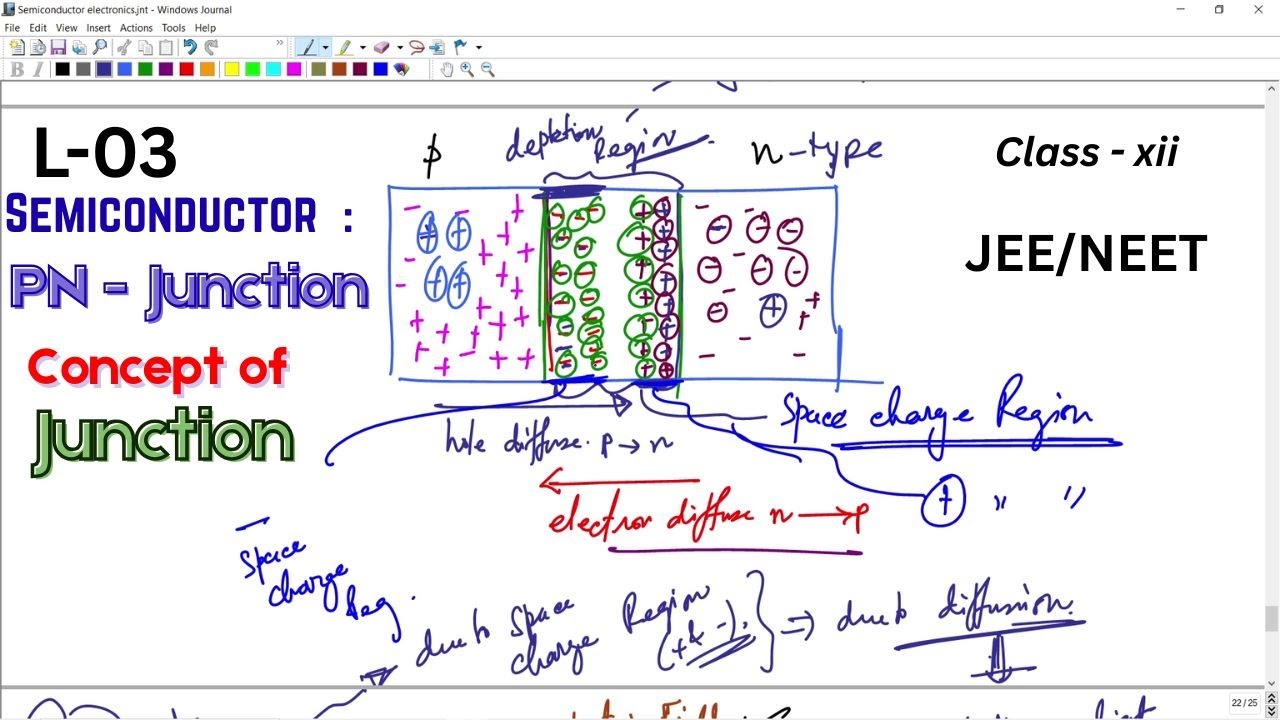 Semiconductor electronics.jnt - Windows Journal
File Edit View Insert Actions Tools Help
B I
L-03
SEMICONDUCTOR :
PN - Junction
Concept of
Junction
Class - xii
JEE/NEET
p
depletion
Region
n-type
hole diffuse. p → n
Space charge Region
electron diffuse n → p
+ " "
-
Space
charge
Reg.
due to Space
charge
Region
(+ & -).
} ⇒ due to diffusion.
22 / 25